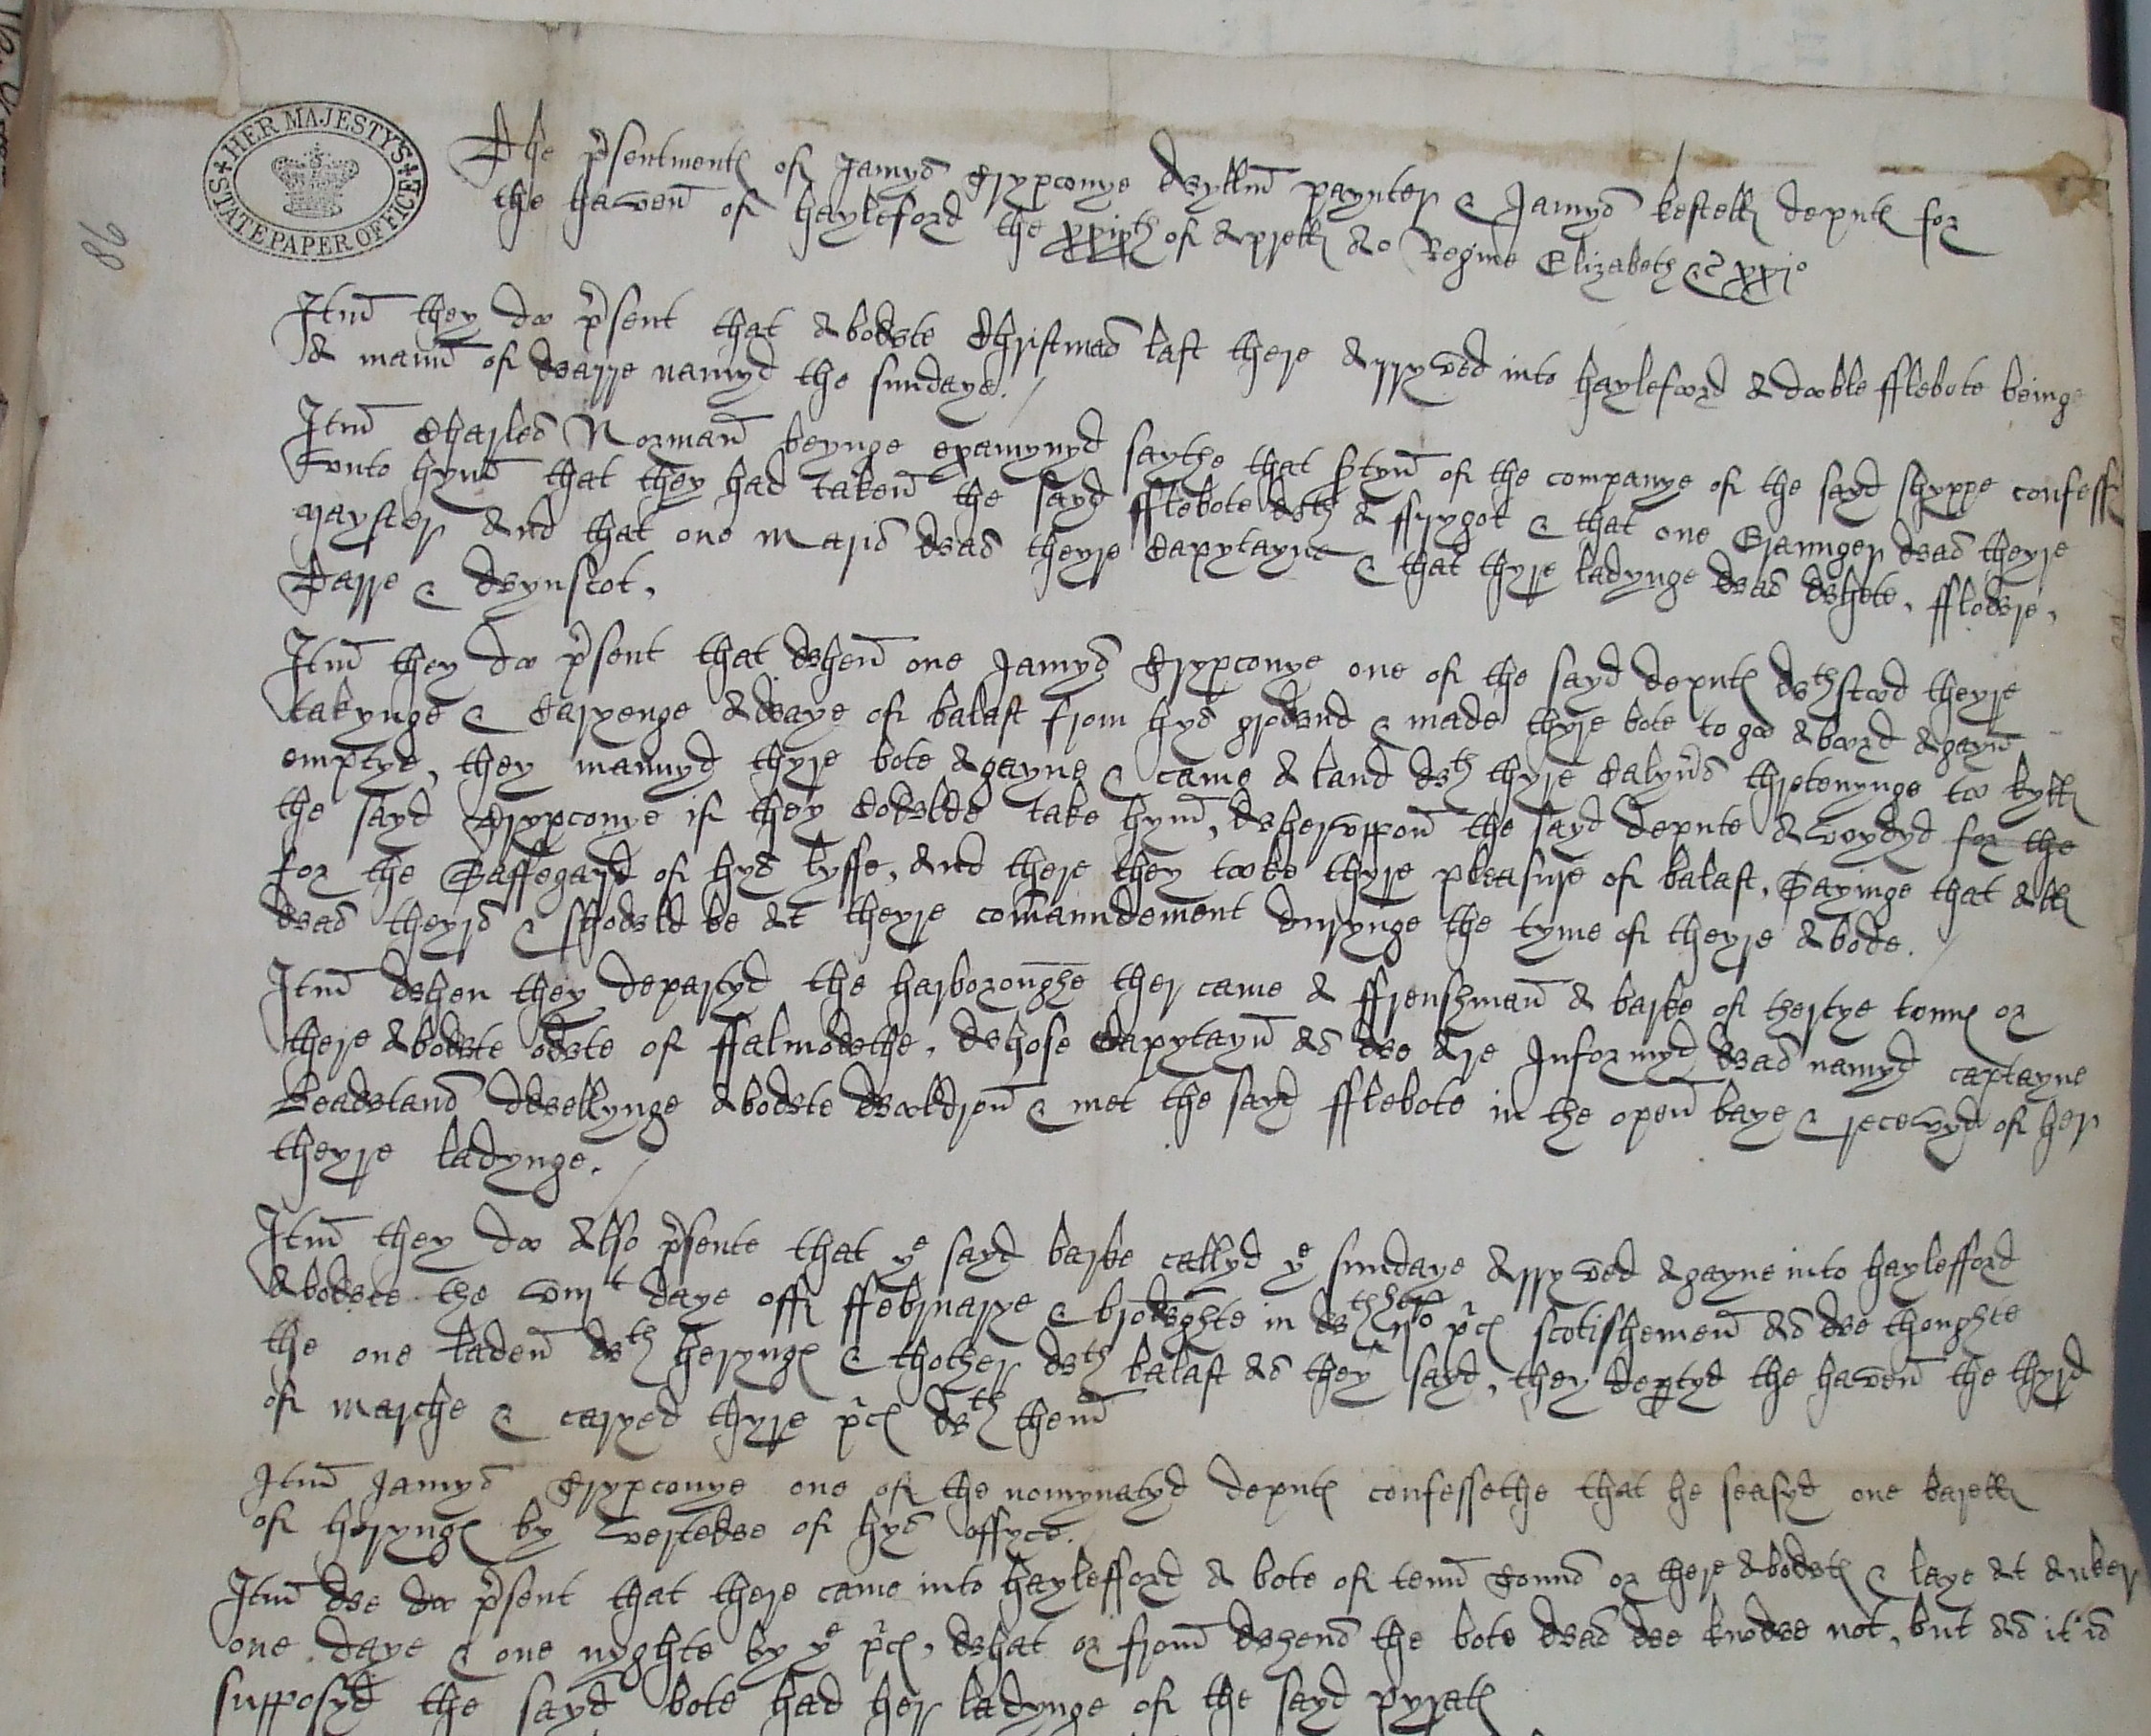 HER MAJESTY'S
STATE PAPER OFFICE
98
The p̄sentment℮ of Jamys Trypconye wyllm̄ paynter & Jamys kestell deput℮ for
the haven̄ of hayleford the xxixth of Apryll Ao Regine Elizabeth &c xxjo
Itm̄ they doo p̄sent that abowte Christmas last there arryved into hayleford a dooble fflebote beinge
a mann̄ of warre namyd the sundaye.
Itm̄ Charles Norman̄ beynge examynyd saythe that ꝑtyn̄ of the companye of the sayd shyppe confess
vnto hym̄ that they had taken̄ the sayd fflebote wth a ffrygot & that one Graunger was theyre
Mayster And that one Maris was theyre Capytayne & that thyre ladynge was whete, fflowre,
Tarre & waynscot.
Itm̄ they doo p̄sent that when̄ one Jamys Trypconye one of the sayd deput℮ wthstood theyre
takynge & Caryenge awaye of balast from hys grownd & made thyre bote to goo aboord agayn̄
emptye, they mannyd thyre bote agayne & came a land wth thyre Calyūs thretenynge too kyll
the sayd Trypconye if they Cowlde take hym̄, whervppon̄ the sayd depute avoydyd for the
for the Saffegard of hys lyffe, And there they tooke thyre pleasure of balast, Sayinge that all
was theyrs & shovld be at theyre com̄aundement durynge the tyme of theyre abode.
Itm̄ when they departyd the harboroughe ther came a ffrenshman̄ a barke of thertye tonn℮ or
there abowte owte of ffalmowthe, whose Capytayn̄ as we are Informyd was namyd captayne
dwellynge abowte & met the sayd fflebote in the open̄ baye & recevyd of her
theyre ladynge.
Itm̄ they doo also p̄sente that ye sayd barke callyd ye sundaye arryved agayne into haylefford
abowte the viijt daye off ffebruarye & browghte in wth her ij p̄c℮ scotishemen̄ as we thoughte
the one laden̄ wth heryng℮ & thother wth balast as they sayd, they deꝑtyd the haven̄ the thyrd
of marche & caryed thyre p̄c℮ wth them̄
Itm̄ Jamys Trypconye one of the nomynatyd deput℮ confessethe that he seasyd one barell
of heryng℮ by vertewe of hys offyce.
Itm̄ we doo p̄sent that there came into haylefford a bote of tenn̄ Tonns or there abowt℮ & laye at anker
one daye & one nyghte by ye p̄c℮, what or from̄ whens the bote was we knowe not, but as it is
supposyd the sayd bote had her ladynge of the sayd pyrat℮